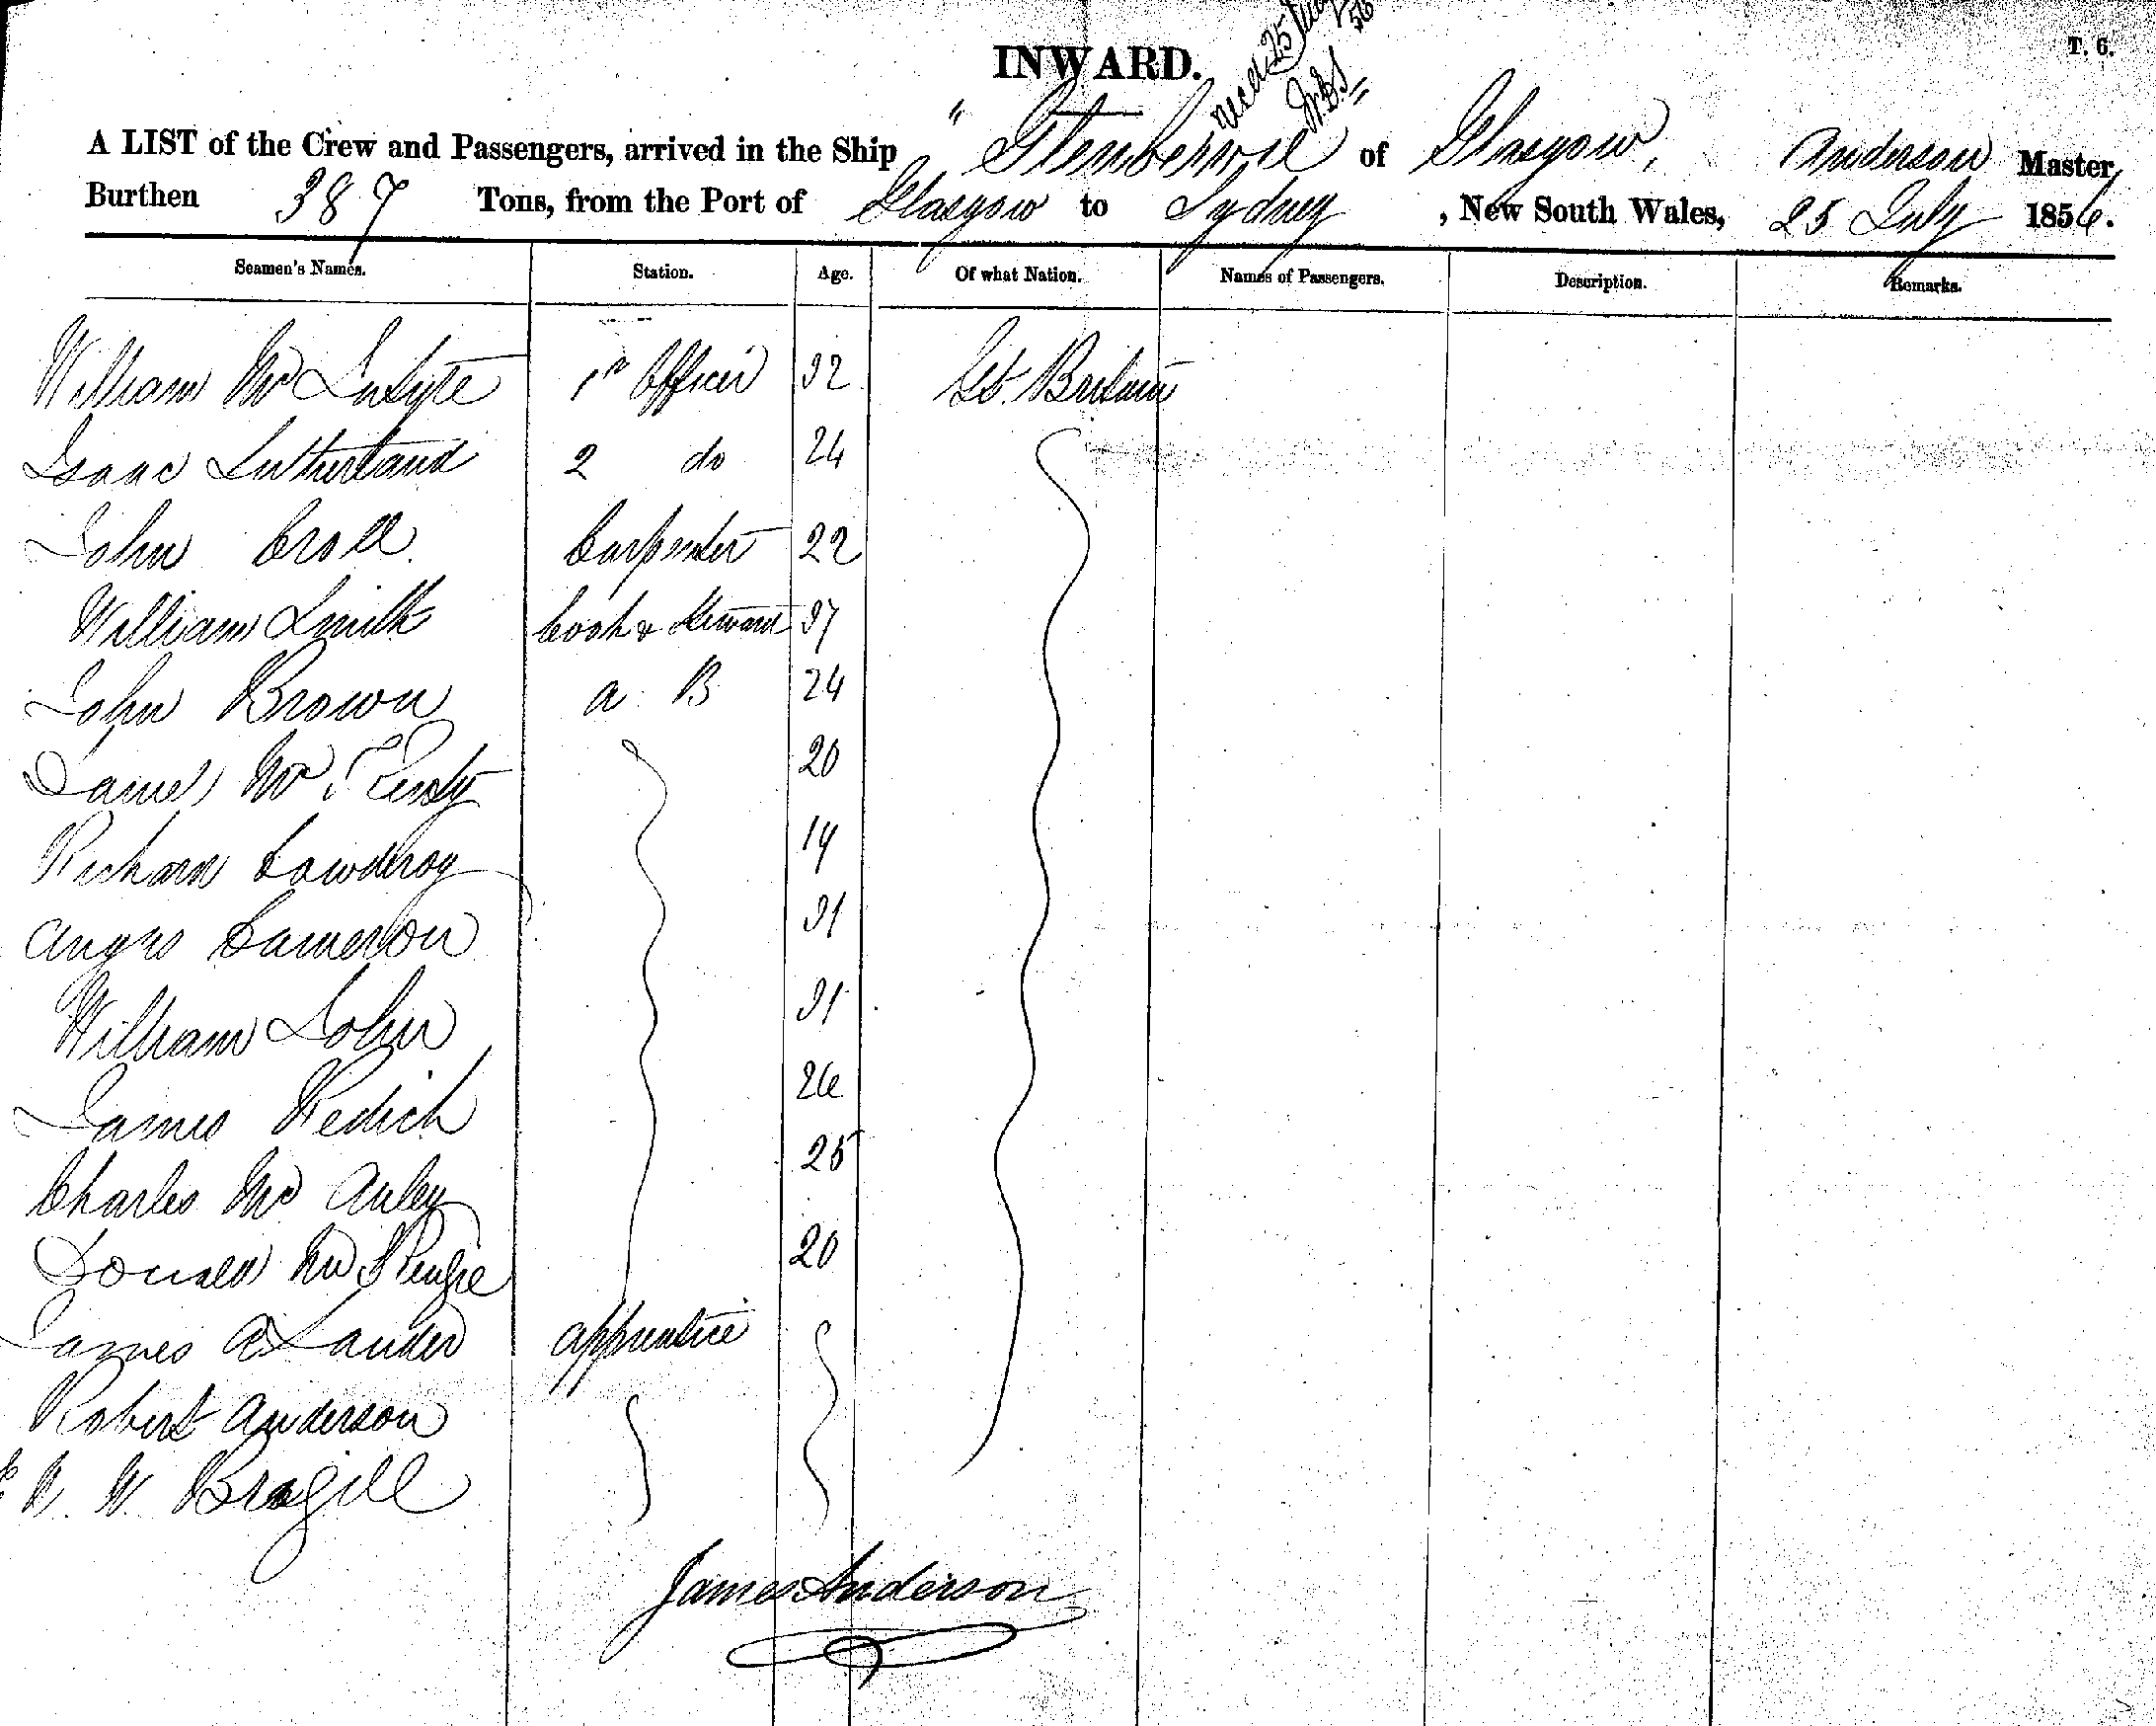 INWARD.
T. 6.
A LIST of the Crew and Passengers, arrived in the Ship "Glenbervie" of Glasgow, Anderson Master,
Burthen 387 Tons, from the Port of Glasgow to Sydney, New South Wales, 25 July 1856.
Seamen's Names. Station. Age. Of what Nation. Names of Passengers. Description. Remarks.
William Mc Intyre 1st Officer 32 Gt. Britain
Isaac Sutherland 2 do 24
John Croll. Carpenter 22
William Smith Cook & Steward 37
John Brown A B 24
Mc 20
Richard Cowderoy 19
Angus Cameron 31
William John 31
James Redich 26
Charles Mc Auley 25
Donald McKenzie 20
James A Lauder apprentice
Robert Anderson
W. Brogill
James Anderson